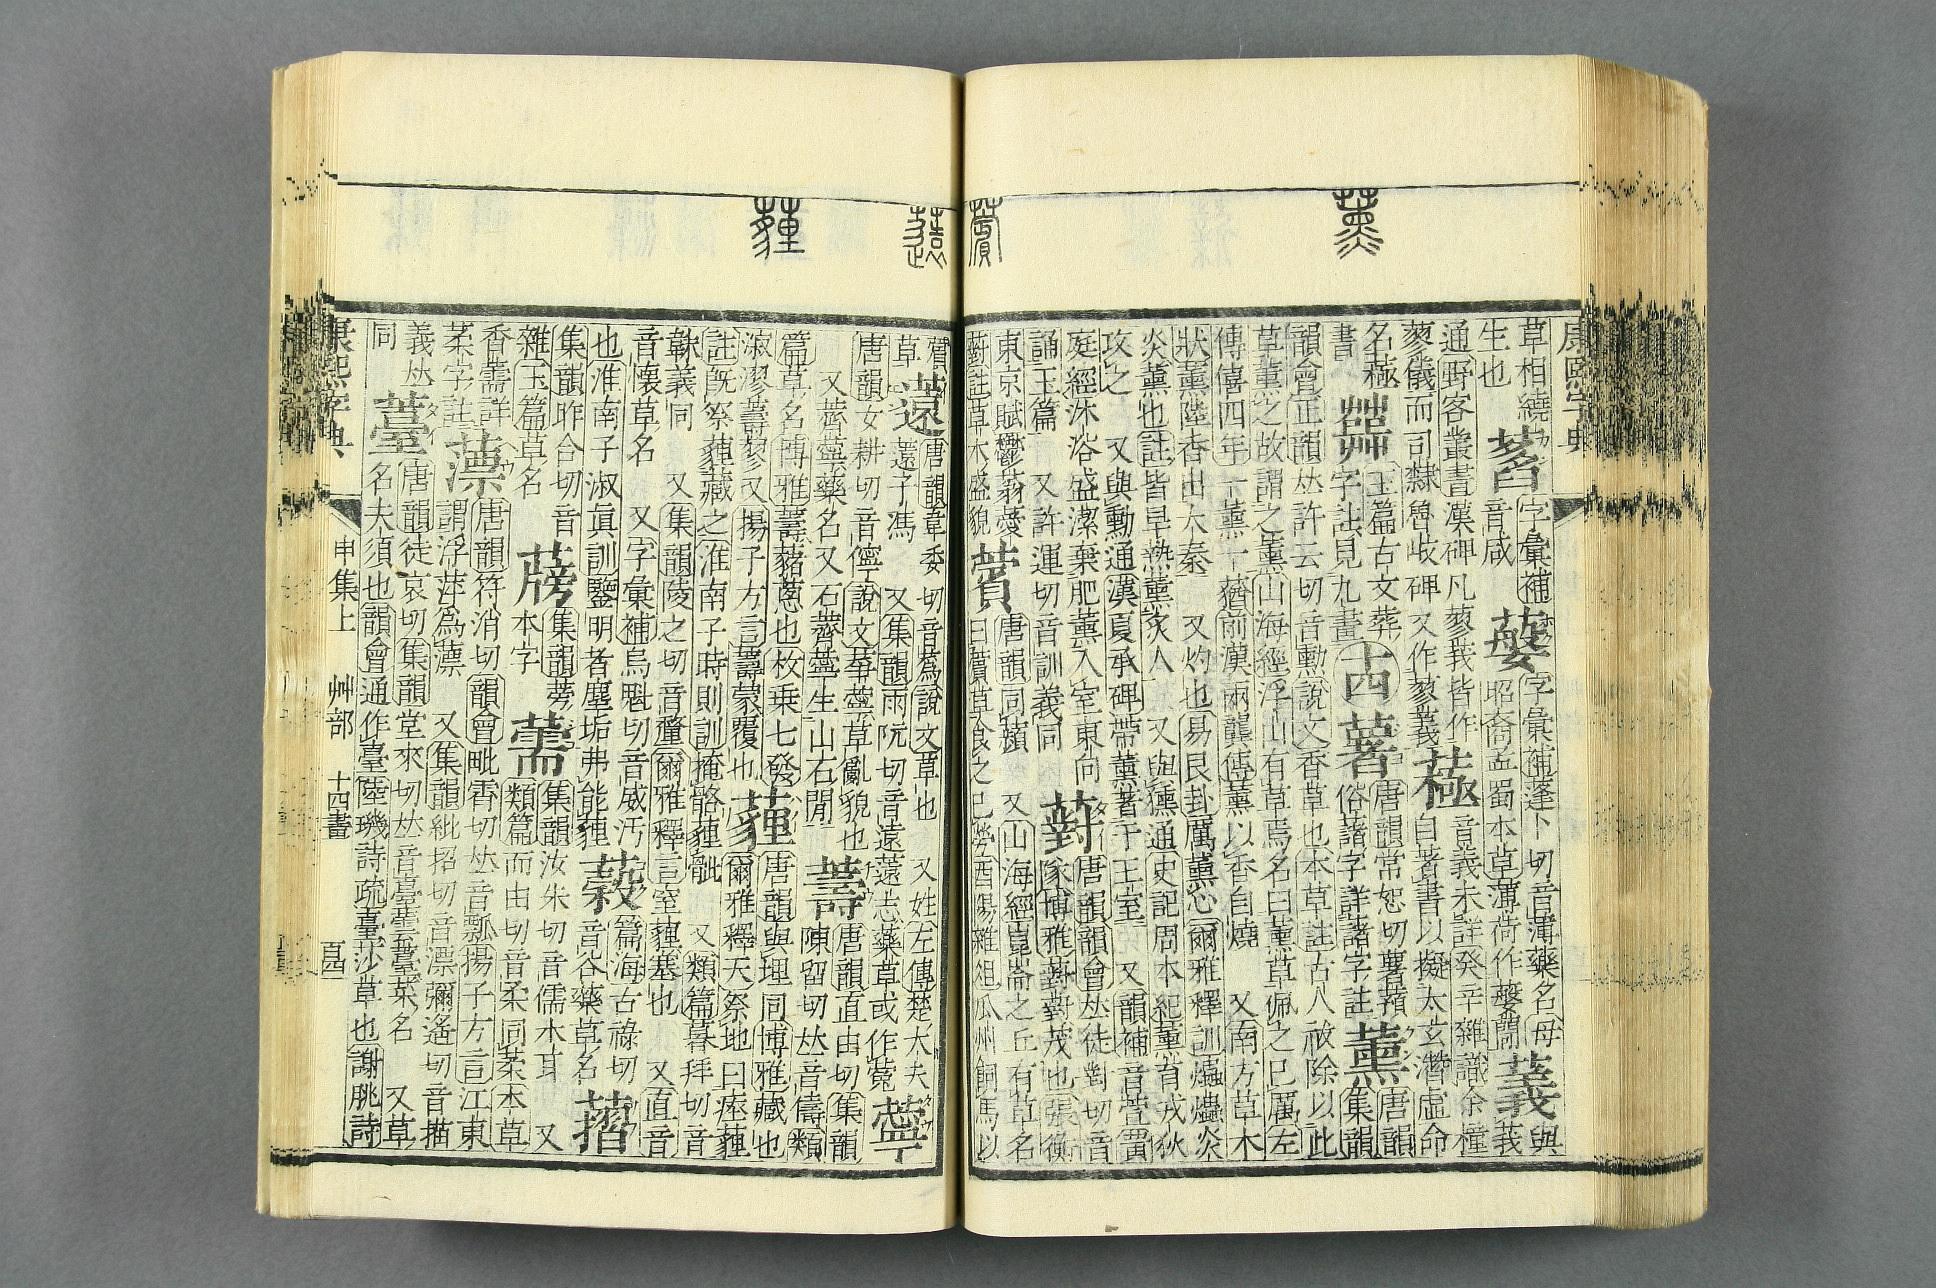 薰
薲
薳
薶
康熙字典
草相繞
字彙補
字彙補蓬卜切音薄藥名毋
與
生也
音咸
昭裔孟蜀本草薄荷作
義
通野客叢書漢碑凡蓼莪皆作
音義未詳癸辛雜識余種
蓼儀而司隸魯峻碑又作蓼義
白著書以擬太玄潛虛命
名
玉篇古文葬
十四
薯
唐韻常恕切音署薯蕷
薰
唐韻
書
字註見九畫
俗藷字詳藷字註
集韻
韻會正韻𠀤許云切音勳說文香草也本草註古人祓除以此
草薰之故謂之薰山海經浮山有草焉名曰薰草佩之已厲左
傳僖四年一薰一蕕前漢兩龔傳薰以香自燒 又南方草木
狀薰陸香出大秦 又灼也易艮卦厲薰心爾雅釋訓爞爞炎
炎薰也註皆旱熱薰炙人 又與獯通史記周本紀薰育戎狄
攻之 又與勳通漢夏承碑帶薰著于王室 又韻補音萱
庭經沐浴盛潔棄肥薰入室東向
薱
唐韻韻會𠀤徒對切音
誦玉篇 又許運切音訓義同
隊博雅薱薱茂也張衡
東京賦鬱蓊薆
薲
唐韻同蘋 又山海經崑崙之丘有草名
薱註草木盛貌
曰薲草食之已勞酉陽雜俎瓜州飼馬以
薲
薳
唐韻韋委切音蔿說文草也 又姓左傳楚大夫
薴
草
薳子馮 又集韻雨阮切音遠薳志藥草或作
唐韻女耕切音儜說文薴草亂貌也
薵
唐韻直由切集韻
陳留切𠀤音儔類
篇草名博雅薵藸蔥也枚乘七發
薶
唐韻與埋同博雅藏也
爾雅釋天祭地曰瘞薶
註旣祭薶藏之淮南子時則訓掩骼薶骴 又類篇暮拜切音
韎義同 又集韻陵之切音釐爾雅釋言窒薶塞也 又直音
音懷草名 又字彙補烏魁切音威汚
篇海古祿切
也淮南子淑眞訓鑒明者塵垢弗能薶
音谷藥草名
集韻昨合切音
集韻蒡
薷
集韻汝朱切音儒木耳 又
雜玉篇草名
本字
類篇而由切音柔同葇本草
香薷詳
薸
唐韻符消切韻會毗霄切𠀤音瓢揚子方言江東
柔字註
謂浮萍爲薸 又集韻紕招切音漂彌遙切音描
義𠀤
薹
唐韻徒哀切集韻堂來切𠀤音臺蕓薹菜名 又草
同
名夫須也韻會通作臺陸璣詩疏臺莎草也謝朓詩
康熙字典
申集上 艸部 十四畫